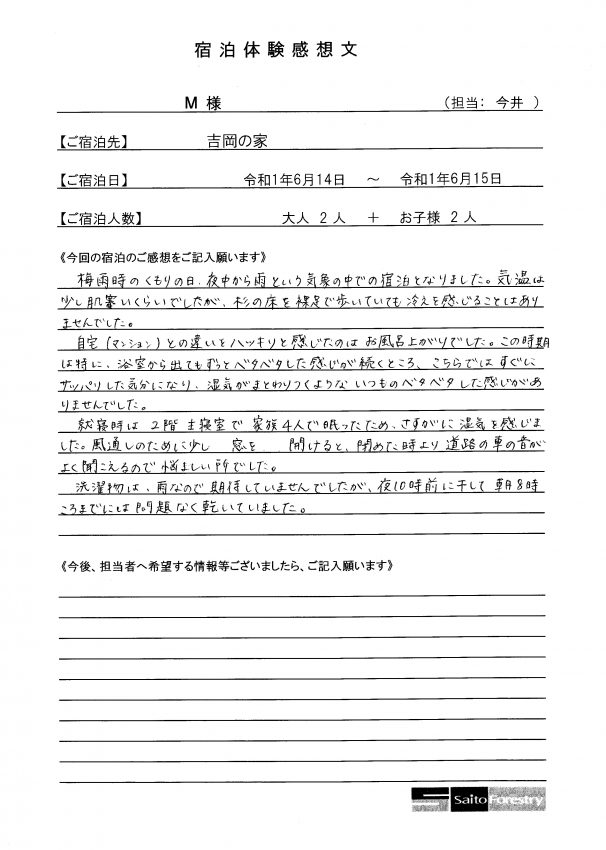 宿泊体験感想文
M 様 （担当： 今井 ）
【ご宿泊先】 吉岡の家
【ご宿泊日】 令和1年6月14日 ～ 令和1年6月15日
【ご宿泊人数】 大人 2 人 ＋ お子様 2 人
《今回の宿泊のご感想をご記入願います》
梅雨時のくもりの日、夜中から雨という気象の中での宿泊となりました。気温は
少し肌寒いくらいでしたが、杉の床を裸足で歩いていても冷えを感じることはあり
ませんでした。
自宅（マンション）との違いをハッキリと感じたのはお風呂上がりでした。この時期
は特に、浴室から出てもずっとベタベタした感じが続くところ、こちらではすぐに
サッパリした気分になり、湿気がまとわりつくようないつものベタベタした感じがあ
りませんでした。
就寝時は2階主寝室で家族4人で眠ったため、さすがに湿気を感じま
した。風通しのために少し 窓を 開けると、閉めた時より道路の車の音が
よく聞こえるので悩ましい所でした。
洗濯物は、雨なので期待していませんでしたが、夜10時前に干して朝8時
ころまでには問題なく乾いていました。
《今後、担当者へ希望する情報等ございましたら、ご記入願います》
Saito Forestry